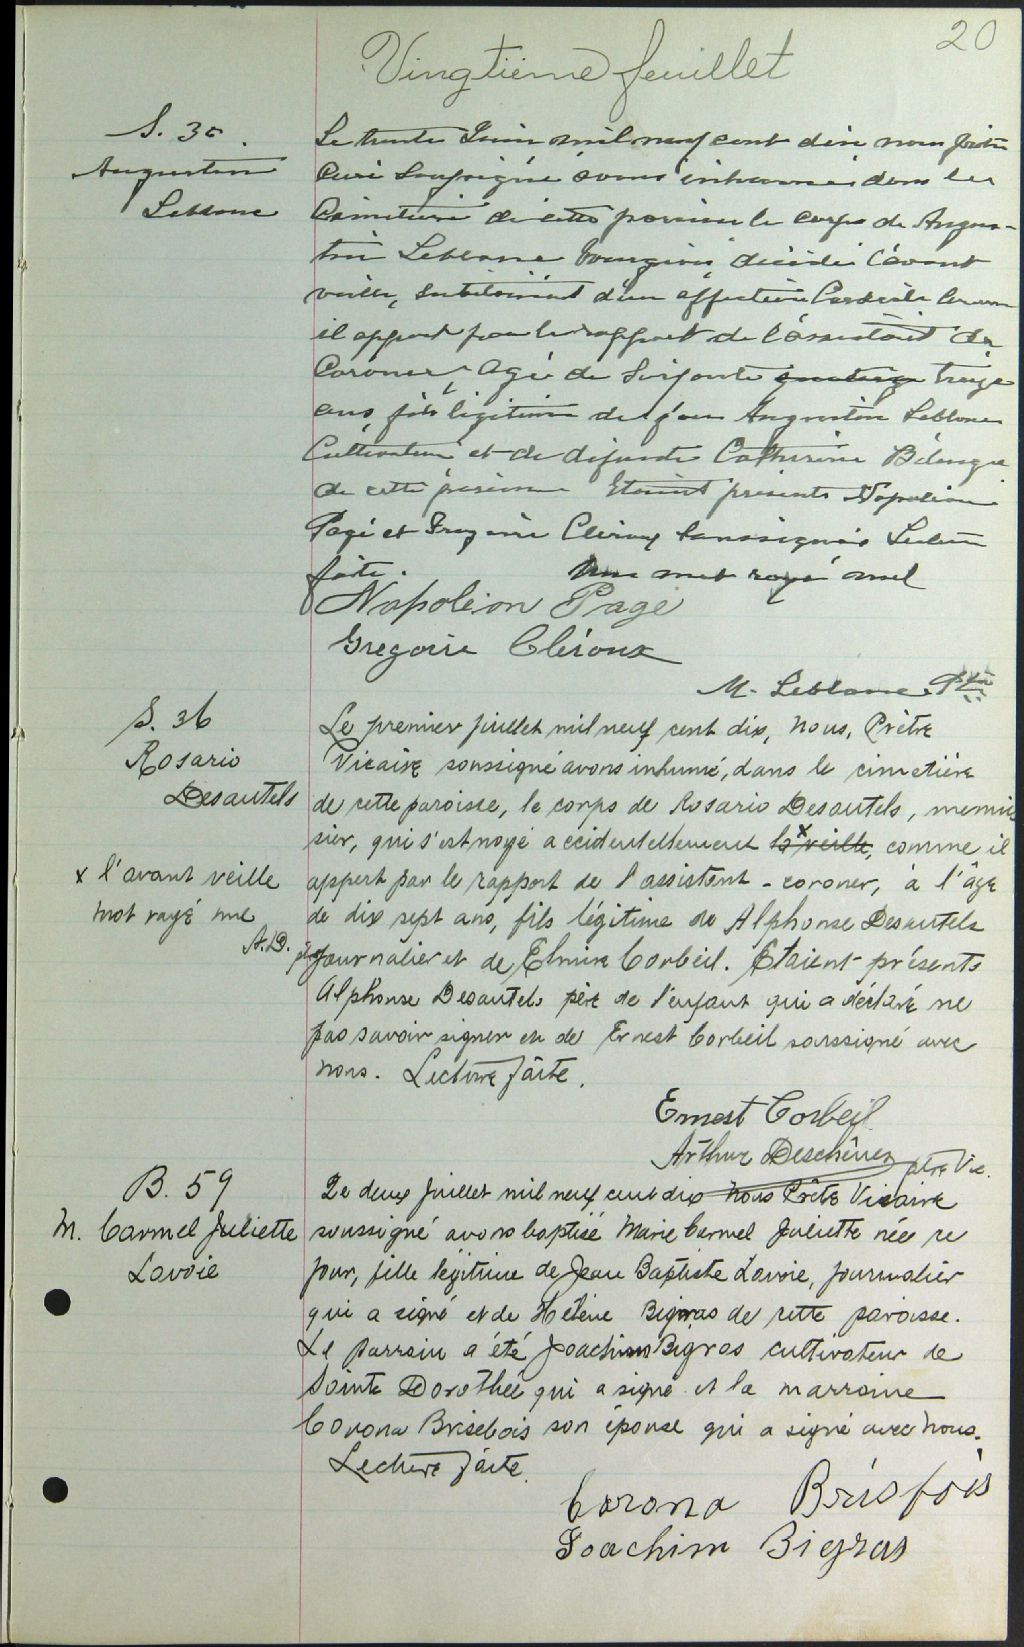 20
Vingtième feuillet
S. 35.
Augustin
Leblanc
Le trente Juin mil neuf cent dix nous prêtre
Curé Soussigné avons inhumé dans le
Cimetière de cette paroisse le corps de Augus-
tin Leblanc bourgeois décédé l'avant
veille, subitement d'une affection Cardiale comme
il appert par le rapport de l'assistant du
Coroner agé de Soixante quatorze treize
ans, fils légitime de feu Augustin Leblanc
Cultivateur et de défunte Catherine Bélanger
de cette paroisse Etaient présents Napoléon
Pagé et Grégoire Cléroux Soussignés Lecture
faite. Un mot rayé nul
Napoléon Pagé
Gregoire Cléroux
M. Leblanc Ptre
S. 36
Rosario
Desautels
x l'avant veille
mot rayé nul
A.D.
Le premier juillet mil neuf cent dix, nous, Prêtre
Vicaire soussigné avons inhumé, dans le cimetière
de cette paroisse, le corps de Rosario Desautels, menui
sier, qui s'est noyé accidentellement la x veille, comme il
appert par le rapport de l'assistent-coroner, à l'âge
de dix sept ans, fils légitime de Alphonse Desautels
journalier et de Elmire Corbeil. Etaient présents
Alphonse Desautels père de l'enfant qui a déclaré ne
pas savoir signer et de Ernest Corbeil soussigné avec
nous. Lecture faite.
Ernest Corbeil
Arthur Deschênes ptre Vic.
B. 59
M. Carmel Juliette
Lavoie
Le deux Juillet mil neuf cent dix nous Prêtre Vicaire
soussigné avons baptisé Marie Carmel Juliette née ce
jour, fille légitime de Jean Baptiste Lavoie, journalier
qui a signé et de Hélène Bigras de cette paroisse.
Le parrain a été Joachim Bigras cultivateur de
Sainte Dorothée qui a signé et la marraine
Corona Brisebois son épouse qui a signé avec nous.
Lecture faite.
Corona Brisfois
Joachim Bigras